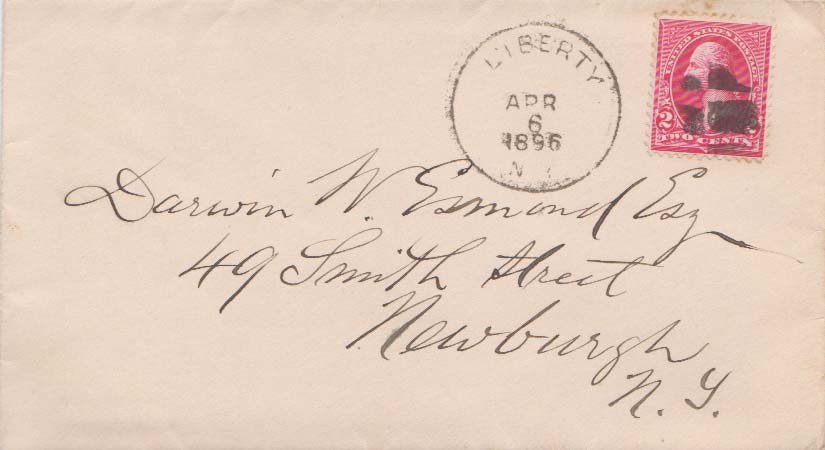 LIBERTY
APR
6
1896
N Y
UNITED STATES POSTAGE
2 2
TWO CENTS
Darwin W. Esmond Esq
49 Smith Street
Newburgh
N. Y.